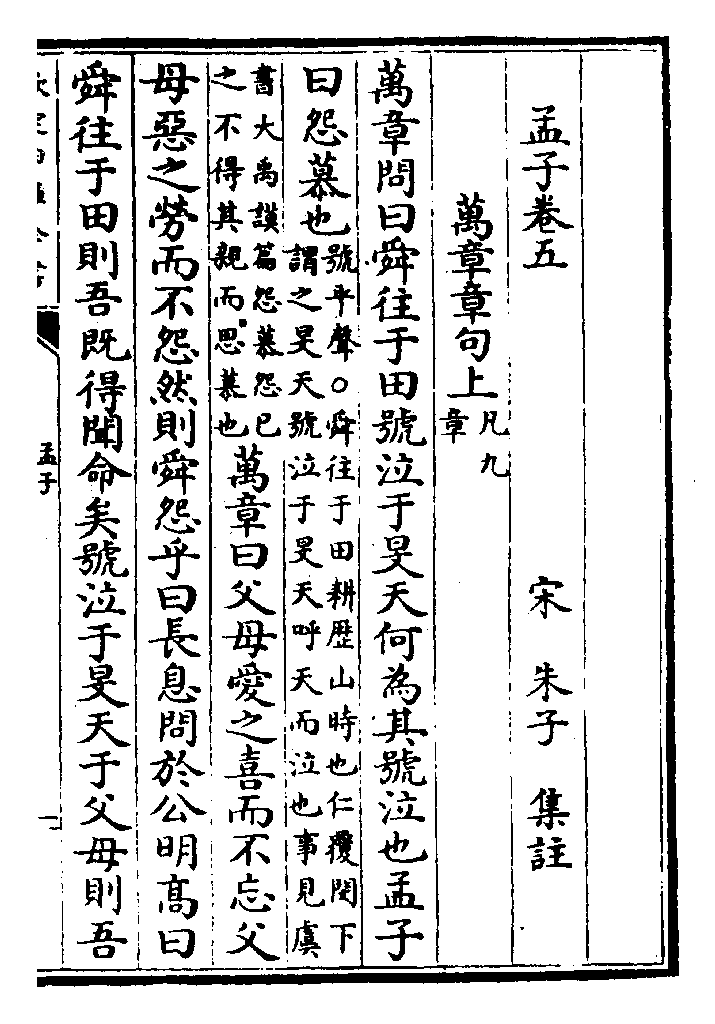 孟子卷五
宋 朱子 集註
萬章章句上凡九章
萬章問曰舜往于田號泣于旻天何為其號泣也孟子
曰怨慕也號平聲○舜往于田耕歴山時也仁覆閔下謂之旻天號泣于旻天呼天而泣也事見虞
書大禹謨篇怨慕怨已之不得其親而思慕也萬章曰父母愛之喜而不忘父
母惡之勞而不怨然則舜怨乎曰長息問於公明髙曰
舜往于田則吾既得聞命矣號泣于旻天于父母則吾
孟子
一